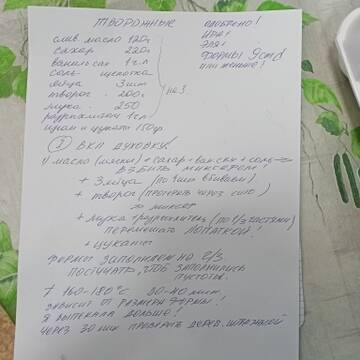 ТВОРОЖНЫЕ
слив. масло 120г
сахар 220г
ваниль сах 1 ч.л
соль щепотка
яйца 3 шт
творог 200г
мука 250
разрыхлитель 1 ч.л
изюм и цукаты 150гр.
на 3
ОДОБРЕНО!
ИРА+
ЭЛЯ+
ФОРМЫ 9см d
или меньше!
① ВКЛ ДУХОВКУ!
1) МАСЛО (мягк) + САХАР + ВАН.САХ + СОЛЬ
ВЗБИТЬ МИКСЕРОМ
+ 3 яйца (по 1 шт вбиваем)
+ творог (ПРОТЕРЕТЬ ЧЕРЕЗ СИТО)
миксер
+ мука + разрыхлитель (по 1/3 частями)
перемешать ЛОПАТКОЙ!
+ ЦУКАТЫ
ФОРМЫ ЗАПОЛНЯЕМ НА 2/3
ПОСТУЧАТЬ, ЧТОБ ЗАПОЛНИЛИСЬ
ПУСТОТЫ.
Т 160-180°С 30-40 мин.
ЗАВИСИТ ОТ РАЗМЕРА ФОРМЫ!
Я ВЫПЕКАЛА ДОЛЬШЕ!
ЧЕРЕЗ 30 мин ПРОВЕРЯТЬ ДЕРЕВ. ШПАЖКОЙ